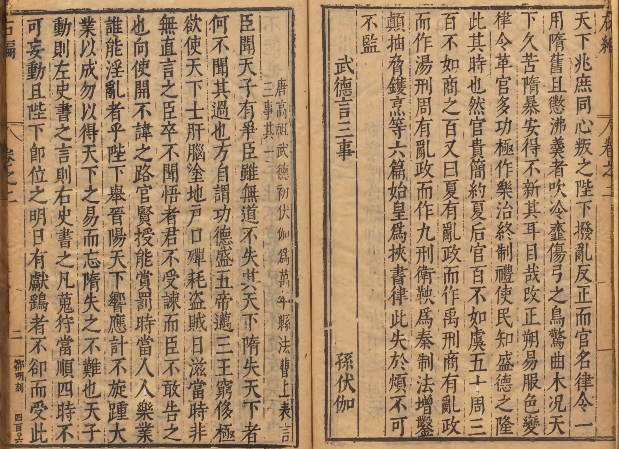 右編
卷之二
天下兆庶同心叛之陛下撥亂反正而官名律令一
用隋舊且懲沸羹者吹冷虀傷弓之鳥驚曲木况天
下久苦隋暴安得不新其耳目哉改正朔易服色變
律令革官多功極作樂治終制禮使民知盛德之隆
此其時也然官貴簡約夏后官百不如虞五十周三
百不如商之百又曰夏有亂政而作禹刑商有亂政
而作湯刑周有亂政而作九刑衛鞅爲秦制法增鑿
顛抽脅鑊烹等六篇始皇爲挾書律此失於煩不可
不監
武德言三事
孫伏伽
唐高祖武德初伏伽爲萬年縣法曹上表言
三事其一
臣聞天子有爭臣雖無道不失其天下隋失天下者
何不聞其過也方自謂功德盛五帝邁三王窮侈極
欲使天下士肝腦塗地戶口殫耗盜賊日滋當時非
無直言之臣卒不聞悟者君不受諫而臣不敢告之
也向使開不諱之路官賢授能賞罰時當人人樂業
誰能淫亂者乎陛下舉晉陽天下響應計不旋踵大
業以成勿以得天下之易而忘隋失之不難也天子
動則左史書之言則右史書之凡蒐狩當順四時不
可妄動且陛下卽位之明日有獻鷂者不卻而受此
右編
卷之二
二
鄒明刻
四百六